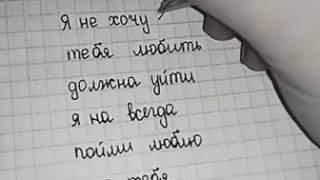 Я не хочу
тебя любить
должна уйти
я на всегда
пойми люблю
тебя